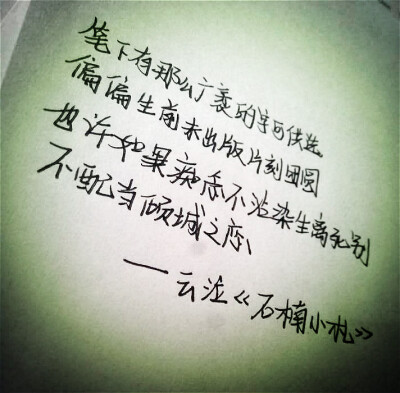 笔下有那么广袤的字可供选
偏偏生前未出版片刻团圆
也许如果痴恋不沾染生离死别
不配当倾城之恋
——云泣《石楠小札》